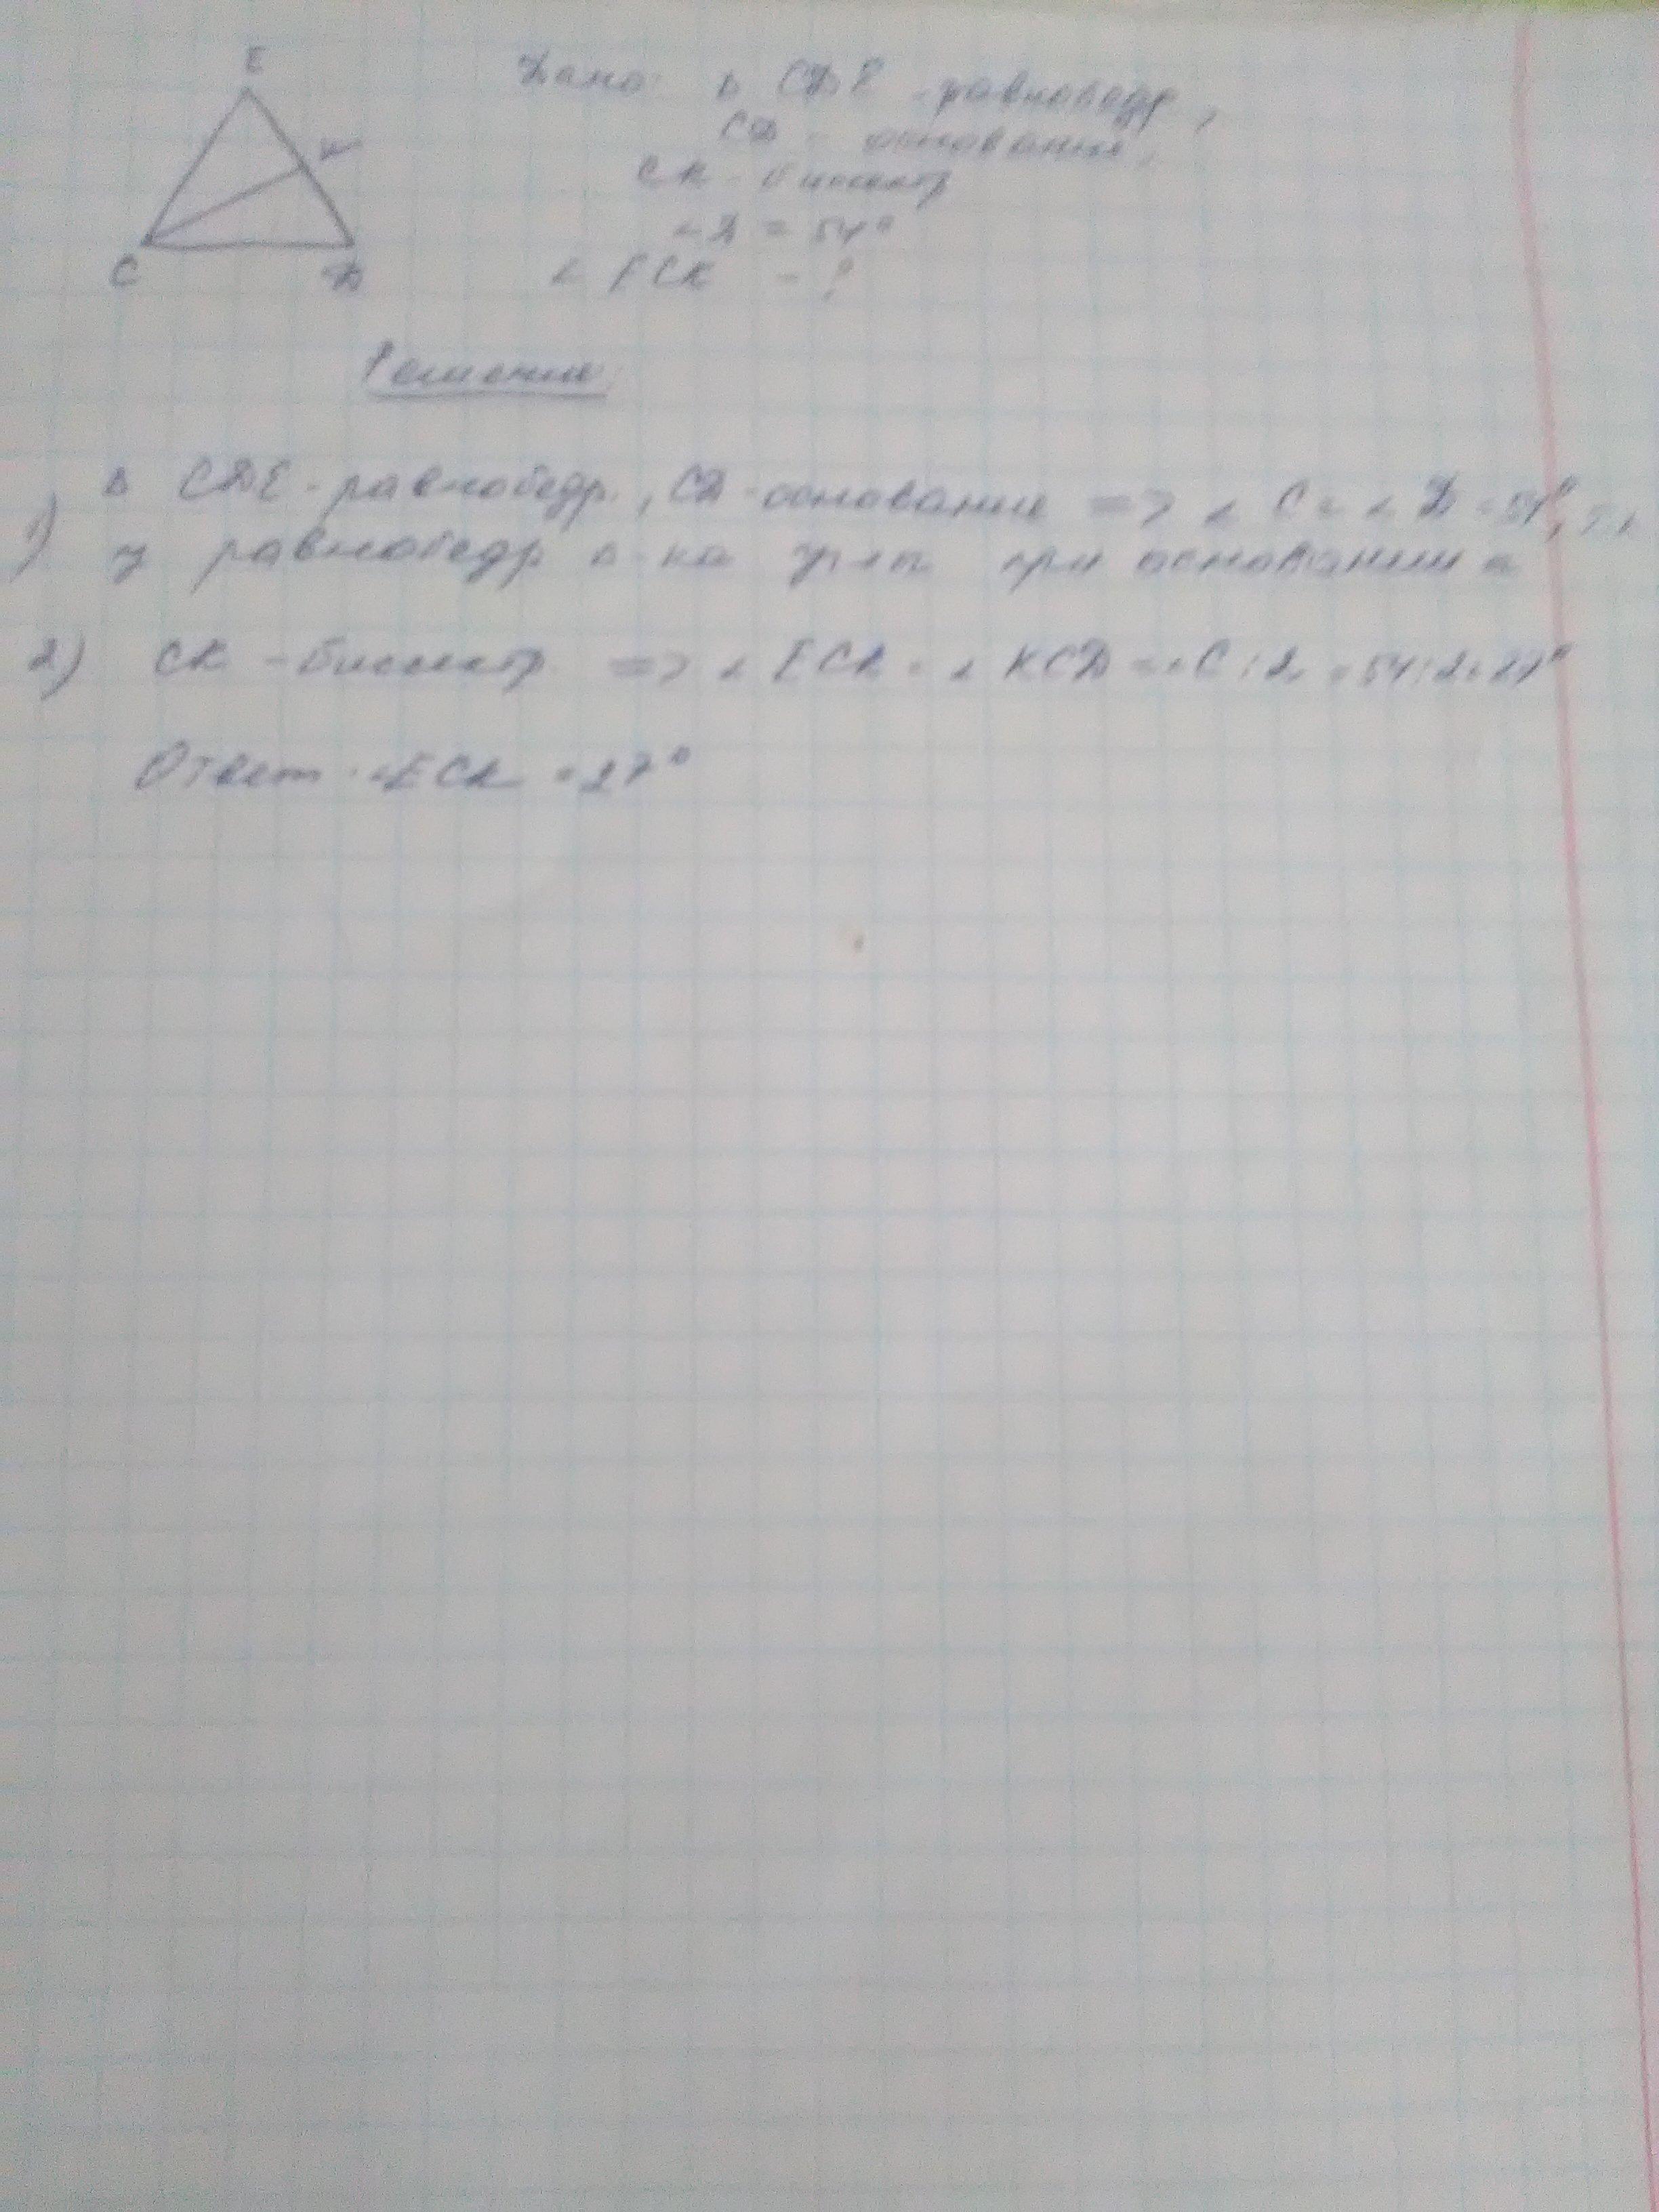 E
K
C
D
Дано: Δ CDE - равнобедр,
CD - основание,
CK - биссектр
∠D = 54°
∠ ECK - ?
Решение:
1) Δ CDE - равнобедр., CD - основание => ∠ C = ∠ D = 54°, т.к
у равнобедр Δ-ка углы при основании =
2) CK - биссектр. => ∠ ECK = ∠ KCD = ∠C : 2 = 54 : 2 = 27°
Ответ: ∠ECK = 27°